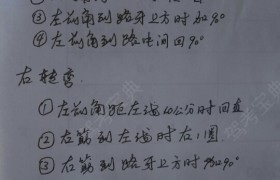 ③左前角到路牙上方时加90°
④左前角到路中间回90°
右转弯
①左前角距左线40公分时间直
②右筋到左线时右1圆
③右筋到路牙上方时加90°